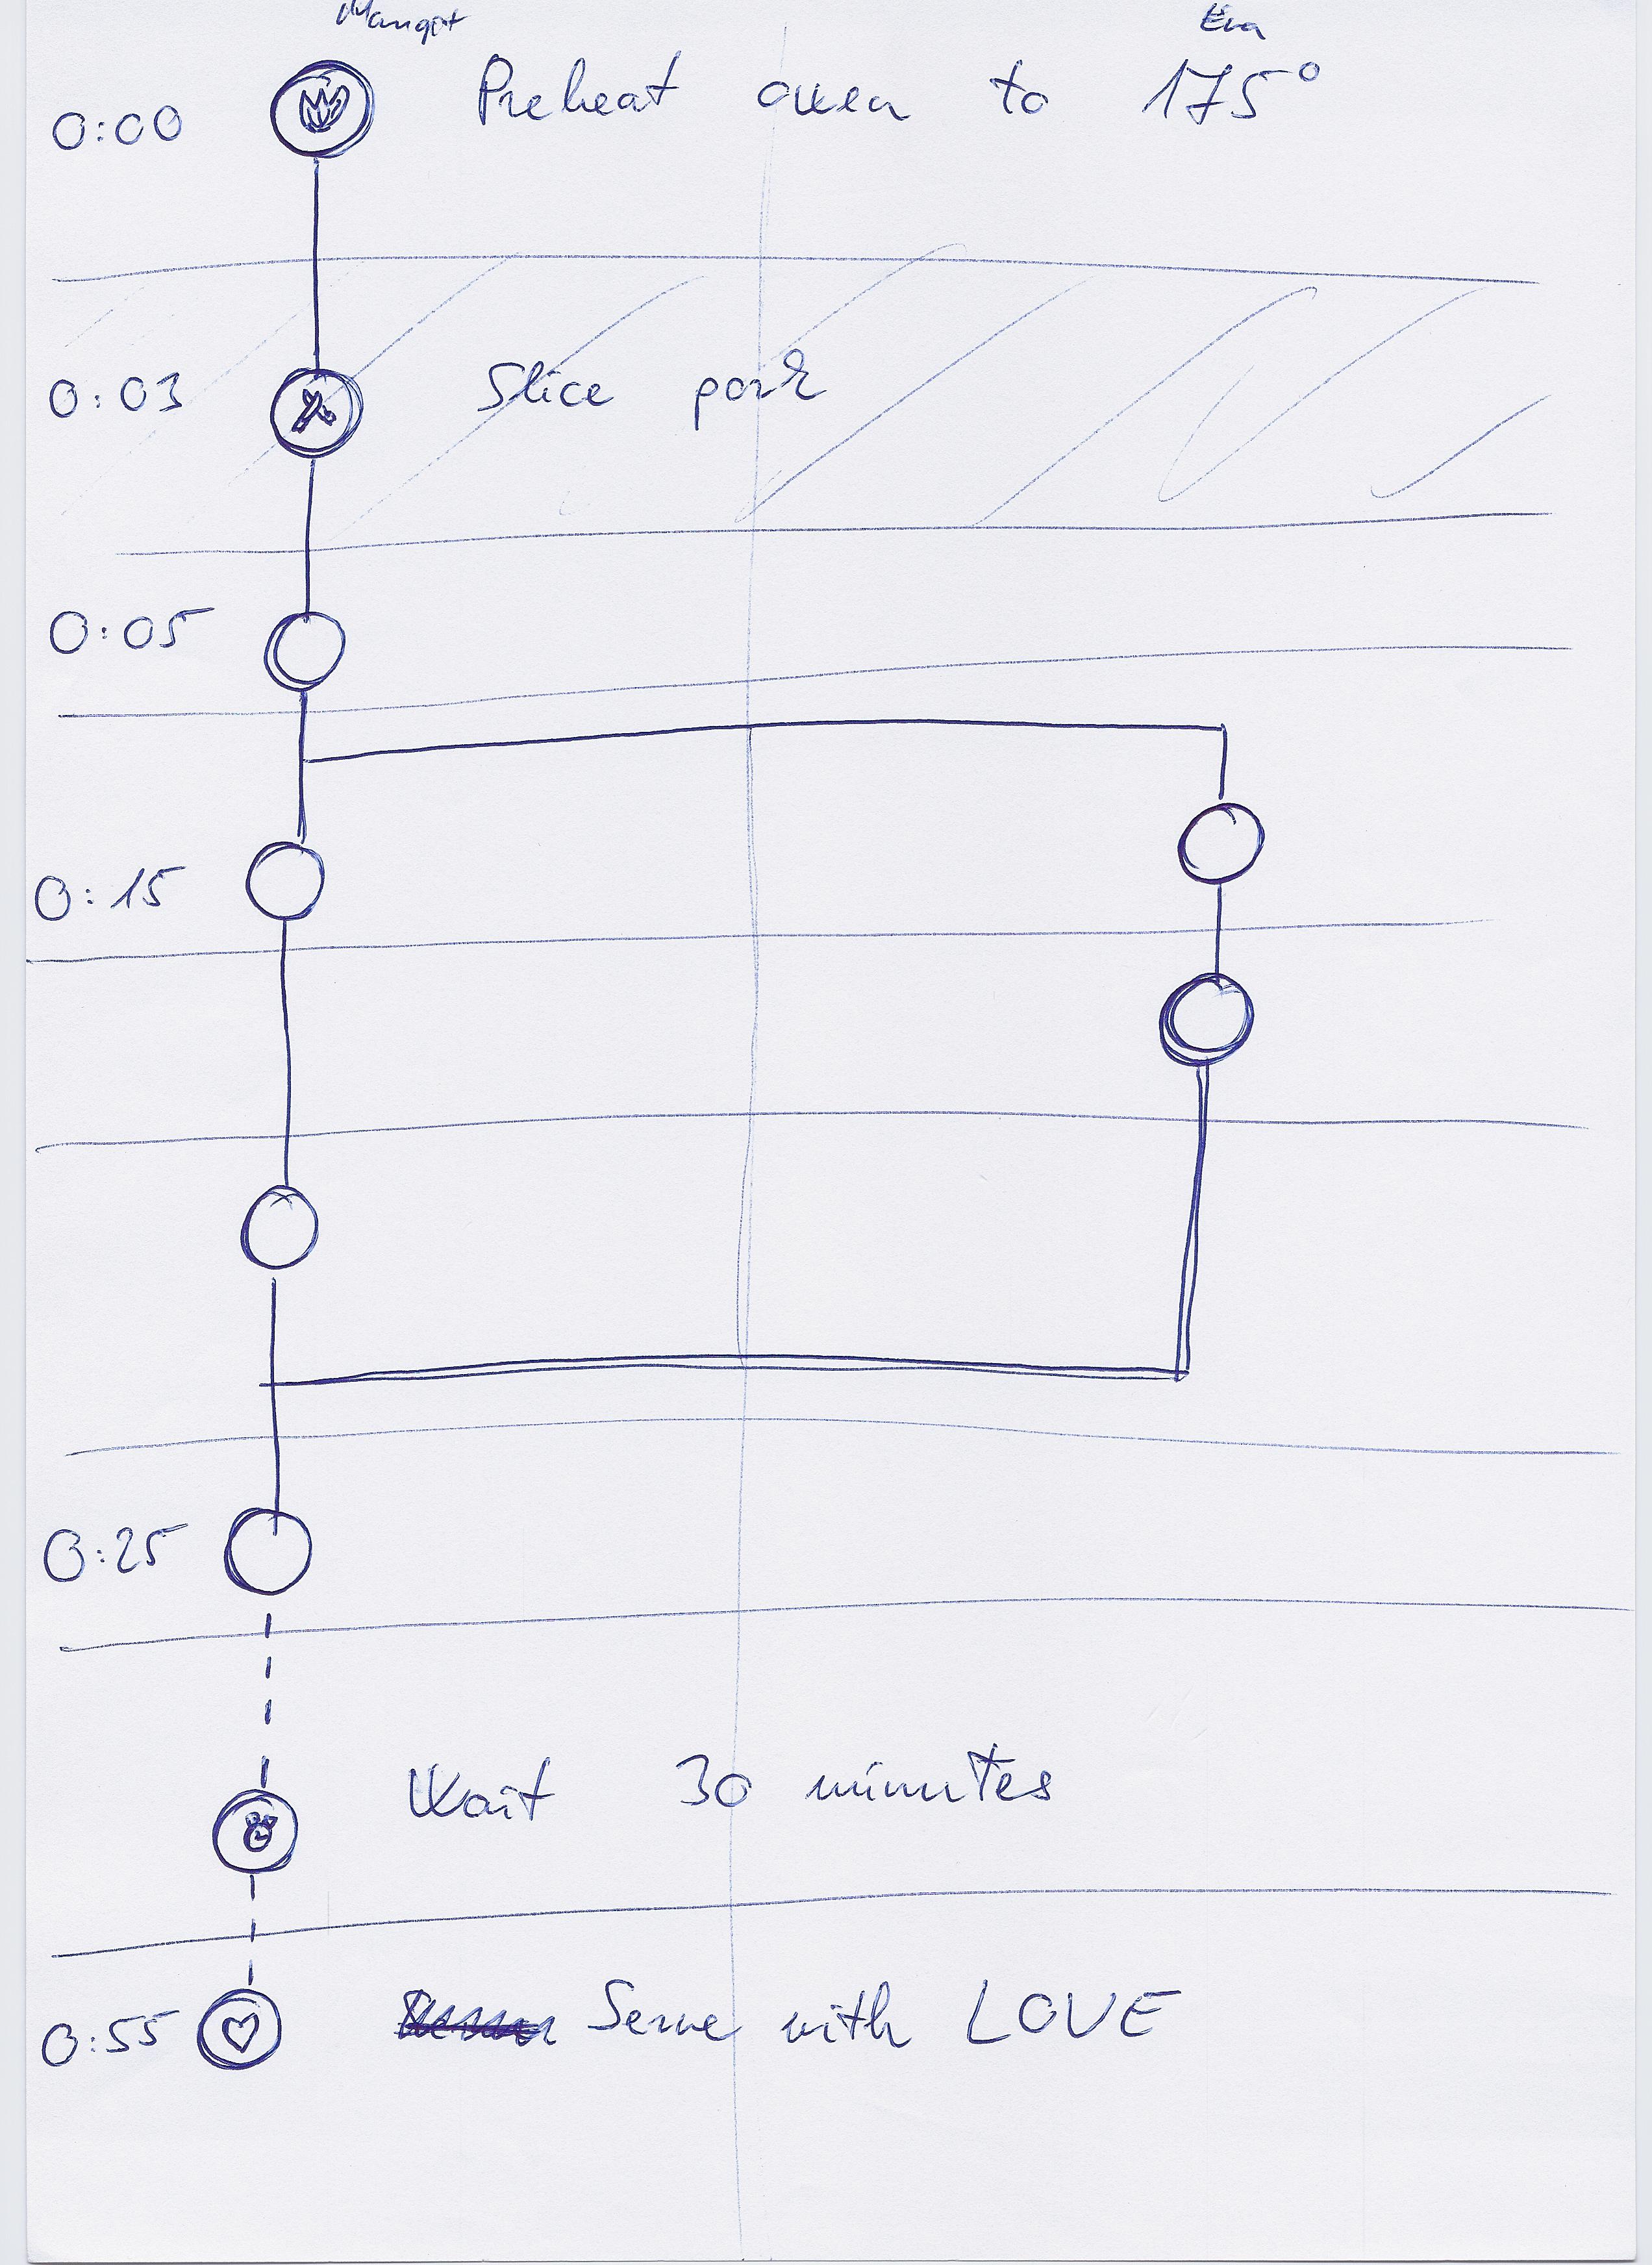 Eva
0:00 Preheat oven to 175°
0:03 Slice pork
0:05
0:15
0:25
Wait 30 minutes
0:55 Serve with LOVE